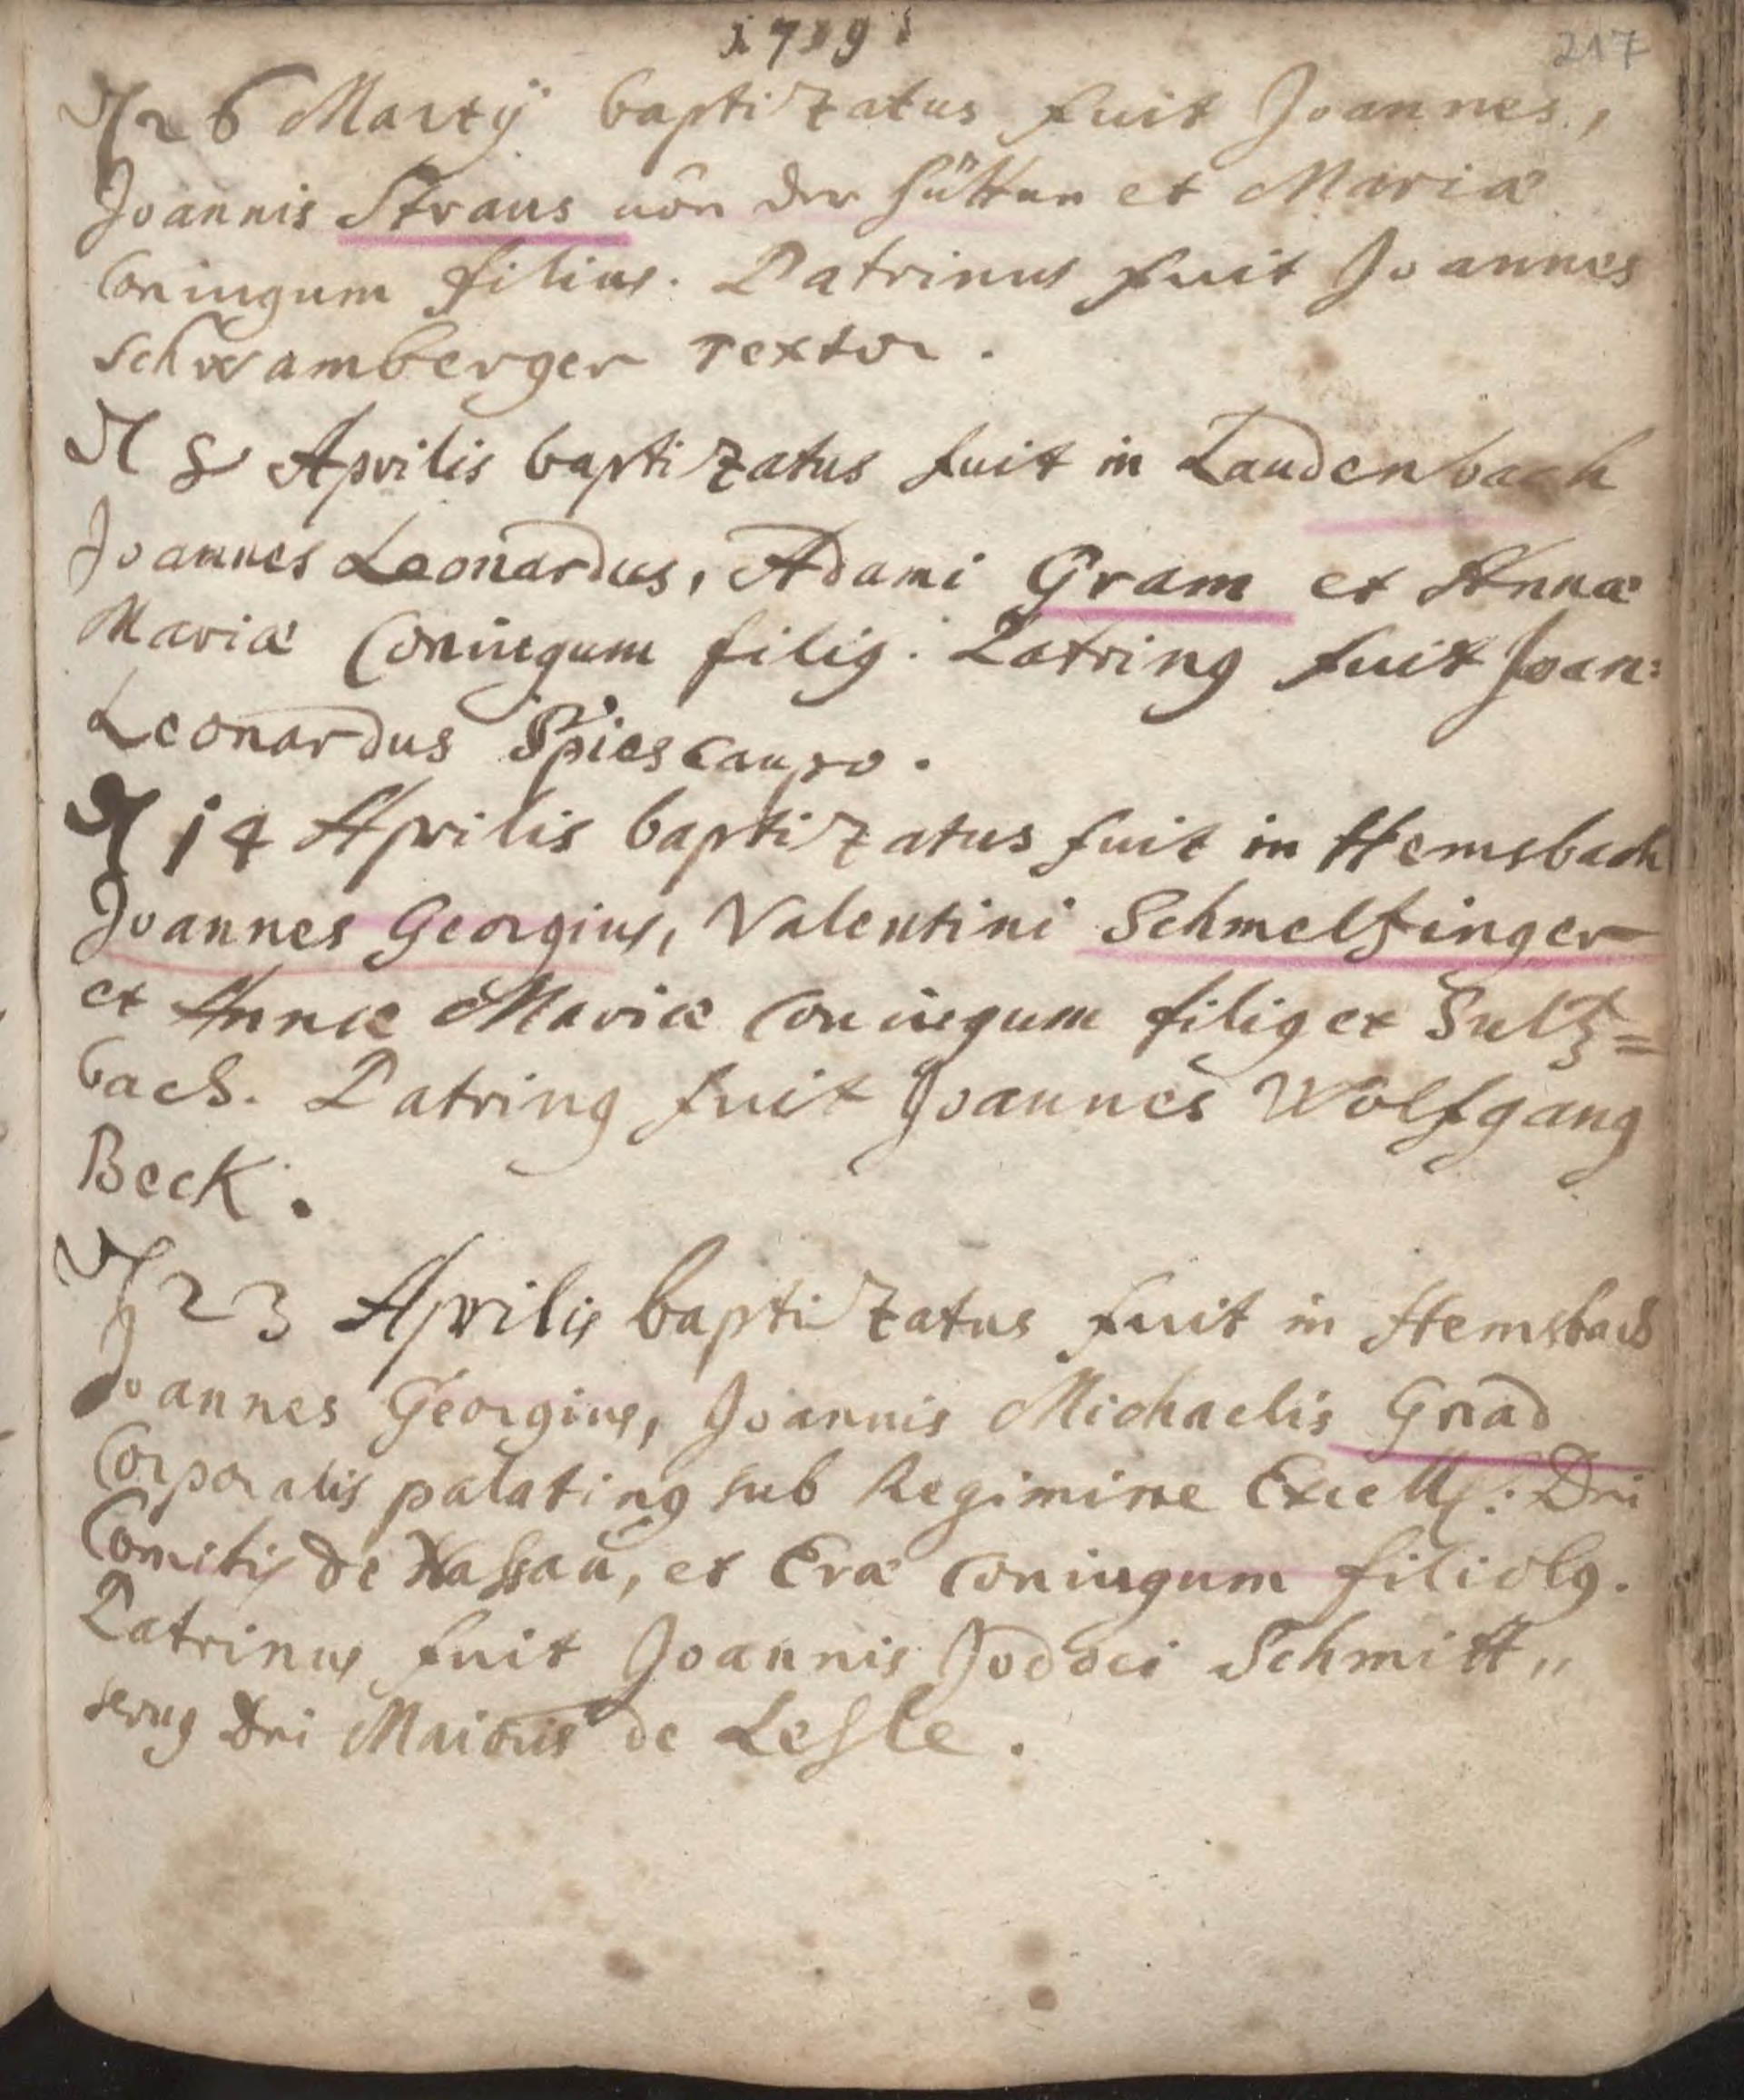 1719
217
26 Martij baptizatus fuit Joannes,
Joannis Straus von der Hütten et Mariæ
Coniugum filius. Patrinus fuit Joannes
Schwamberger textor.
8 Aprilis baptizatus fuit in Laudenbach
Joannes Leonardus, Adami Gram et Annæ
Mariæ Coniugum filig. Patring fuit Joan:
Leonardus Spies caupo.
14 Aprilis baptizatus fuit in Hemsbach
Joannes Georgius, Valentini Schmeltzinger
et Annæ Mariæ Coniugum filig ex Sultz=
bach. Patring fuit Joannes Wolfgang
Beck.
23 Aprilis baptizatus fuit in Hemsbach
Joannes Georgius, Joannis Michaelis Gnad
Corporalis palating sub Regimine Excell: Dni
Comitis de Nassau, et Evæ Coniugum filiolg.
Patrinus fuit Joannis Jodoci Schmitt,,
servg Dni Maioris de Lesle.